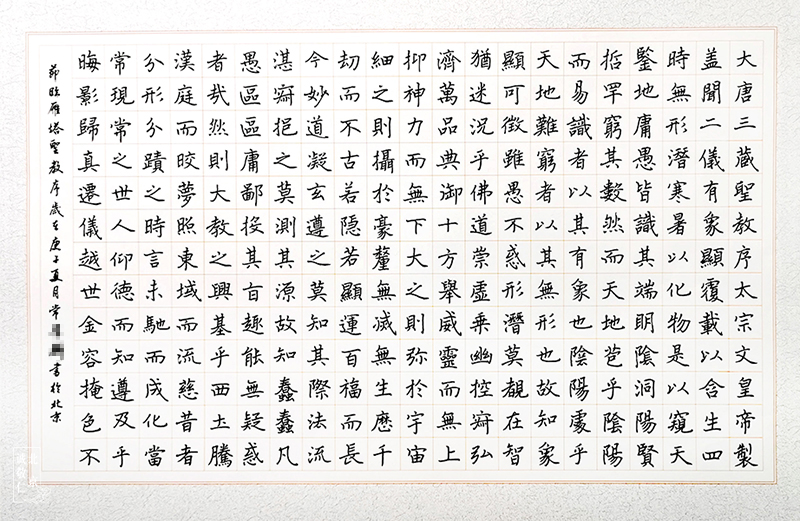 大唐三藏聖教序太宗文皇帝製
盖聞二儀有象顯覆載以含生四
時無形潛寒暑以化物是以窺天
鑒地庸愚皆識其端明陰洞陽賢
哲罕窮其數然而天地苞乎陰陽
而易識者以其有象也陰陽處乎
天地難窮者以其無形也故知象
顯可徵雖愚不惑形潛莫覩在智
猶迷況乎佛道崇虛乘幽控寂弘
濟萬品典御十方舉威靈而無上
抑神力而無下大之則弥於宇宙
細之則攝於豪釐無滅無生歷千
劫而不古若隱若顯運百福而長
今妙道凝玄遵之莫知其際法流
湛寂挹之莫測其源故知蠢蠢凡
愚區區庸鄙投其旨趣能無疑惑
者哉然則大教之興基乎西土騰
漢庭而皎夢照東域而流慈昔者
分形分蹟之時言未馳而成化當
常現常之世人仰德而知遵及乎
晦影歸真遷儀越世金容掩色不
節臨雁塔聖教序歲在庚子夏月常書於北京